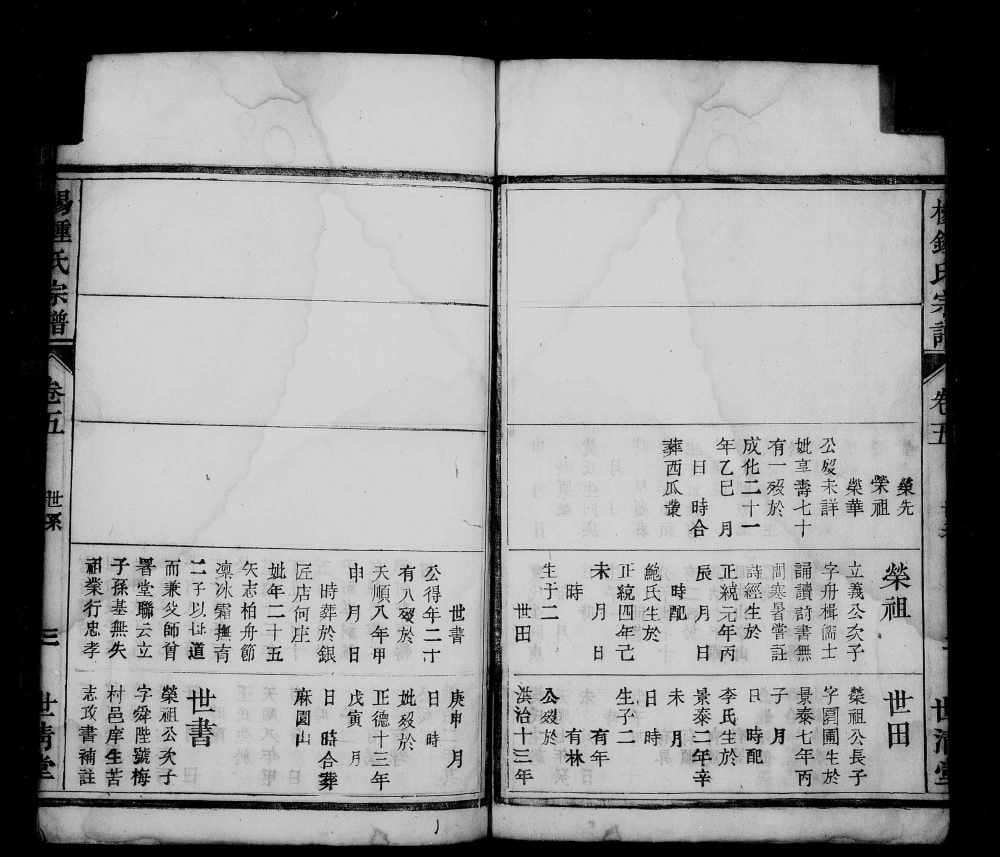 鍾氏宗譜
卷五
榮先
榮祖
榮華
公歿未詳
妣享壽七十
有一歿於
成化二十一
年乙巳 月
日 時合
葬西瓜叢
榮祖
立義公次子
字舟楫儒士
誦讀詩書無
間寒暑嘗註
詩經生於
正統元年丙
辰 月 日
時配
鮑氏生於
正統四年己
未 月 日
時
生子二
世田
世書
公得年二十
有八歿於
天順八年甲
申 月 日
時葬於銀
匠店何庄
妣年二十五
矢志柏舟節
凜冰霜撫育
二子以母道
而兼父師曾
署堂聯云立
子孫基無失
祖業行忠孝
世田
榮祖公長子
字園圃生於
景泰七年丙
子 月
日 時配
李氏生於
景泰二年辛
未 月
日 時
生子二
有年
有林
公歿於
洪治十三年
庚申 月
日 時
妣歿於
正德十三年
戊寅 月
日 時合葬
麻園山
世書
榮祖公次子
字舜陞號梅
村邑庠生苦
志攻書補註
世清堂
鍾氏宗譜
卷五
世系
三
世清堂